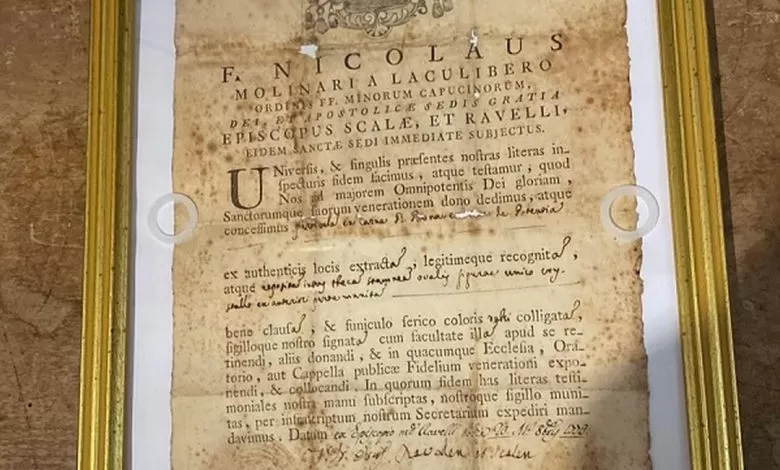 F. NICOLAUS
MOLINARI A LACULIBERO
ORDINIS FF. MINORUM CAPUCINORUM,
DEI, ET APOSTOLICÆ SEDIS GRATIA
EPISCOPUS SCALÆ, ET RAVELLI,
EIDEM SANCTÆ SEDI IMMEDIATE SUBJECTUS.
Universis, & singulis præsentes nostras literas in-
specturis fidem facimus, atque testamur, quod
Nos ad majorem Omnipotentis Dei gloriam,
Sanctorumque suorum venerationem dono dedimus, atque
concessimus particula ex carne B. Bonaventuræ de Potentia
ex authenticis locis extracta, legitimeque recognita,
atque theca ovalis figuræ unico cry-
stallo ex anteriori parte munita
bene clausa, & funiculo serico coloris rubri colligata,
sigilloque nostro signata cum facultate illa apud se re-
tinendi, aliis donandi, & in quacumque Ecclesia, Ora-
torio, aut Cappella publicæ Fidelium venerationi expo-
nendi, & collocandi. In quorum fidem has literas testi-
moniales nostra manu subscriptas, nostroque sigillo muni-
tas, per infrascriptum nostrum Secretarium expediri man-
davimus. Datum ex